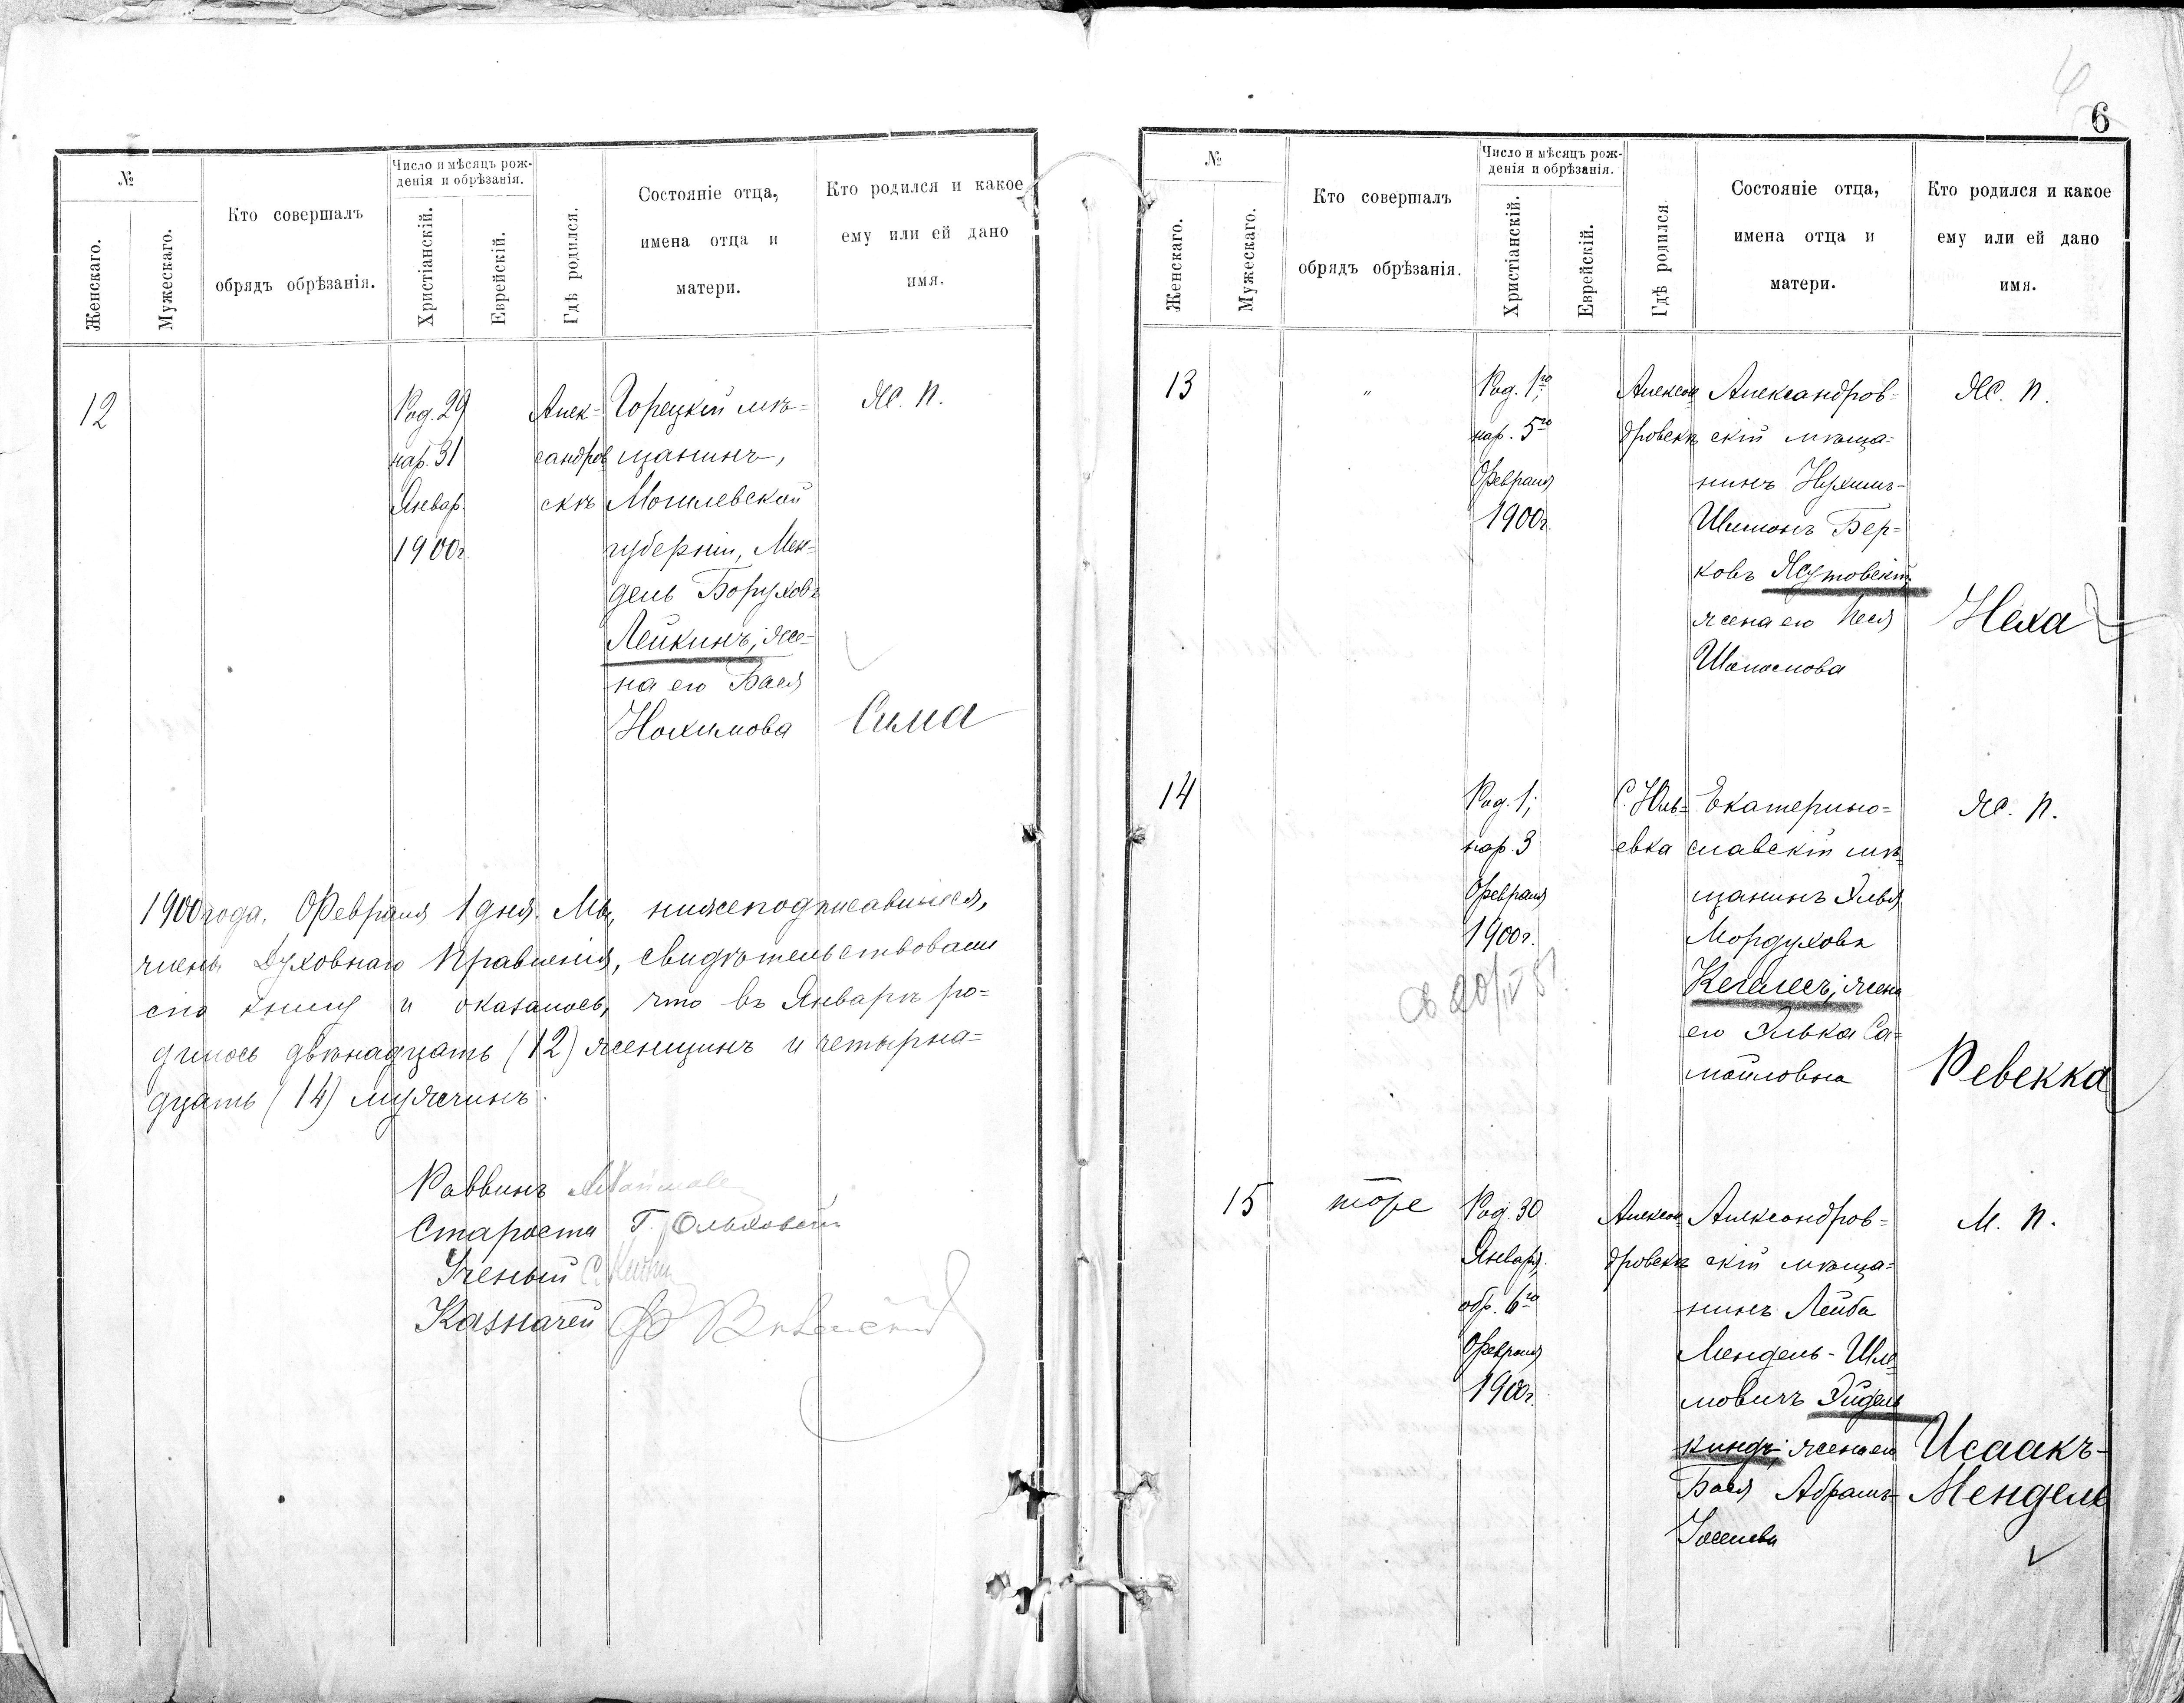 №
Женскаго.
Мужескаго.
Кто совершалъ
обрядъ обрѣзанія.
Число и мѣсяцъ рож-
денія и обрѣзанія.
Христіанскій.
Еврейскій.
Гдѣ родился.
Состояніе отца,
имена отца и
матери.
Кто родился и какое
ему или ей дано
имя.
12
Род. 29
нар. 31
Январ.
1900г.
Алек-
сандров
скѣ
Горецкій мѣ-
щанинъ,
Могилевской
губерніи, Мен-
дель Боруховъ
Лейкинъ; же-
на его Бася
Нохимова
Ж. п.
Сима
1900 года, Февраля 1 дня. Мы, нижеподписавшіеся,
члены Духовнаго Правленія, свидѣтельствовали
сію книгу и оказалось, что въ Январѣ ро-
дилось двѣнадцать (12) женщинъ и четырна-
дцать (14) мужчинъ.
Раввинъ
Староста Г. Ольховскій
Ученый С.
Казначей
6
№
Женскаго.
Мужескаго.
Кто совершалъ
обрядъ обрѣзанія.
Число и мѣсяцъ рож-
денія и обрѣзанія.
Христіанскій.
Еврейскій.
Гдѣ родился.
Состояніе отца,
имена отца и
матери.
Кто родился и какое
ему или ей дано
имя.
13
"
Род. 1го;
нар. 5го
Февраля
1900г.
Алексан
дровскѣ
Александров-
скій мѣща-
нинъ Нухимъ-
Шимонъ Бер-
ковъ Жутовскій
жена его Песя
Ж. п.
Неха
14
Род. 1;
нар. 3
Февраля
1900г.
С. Юль-
евка
Екатерино-
славскій мѣ-
щанинъ Элья
Мордуховъ
жена
его Элька Са-
мойловна
Ж. п.
Ревекка
15
тоже
Род. 30
Января;
обр. 6го
Февраля
1900г.
Алексан
дровскѣ
Александров-
скій мѣща-
нинъ Лейба
Мендель-Шле-
мовичъ Эйдель
киндъ; жена его
Бася Абрамъ-
Іоселева
М. п.
Исаакъ-
Мендель